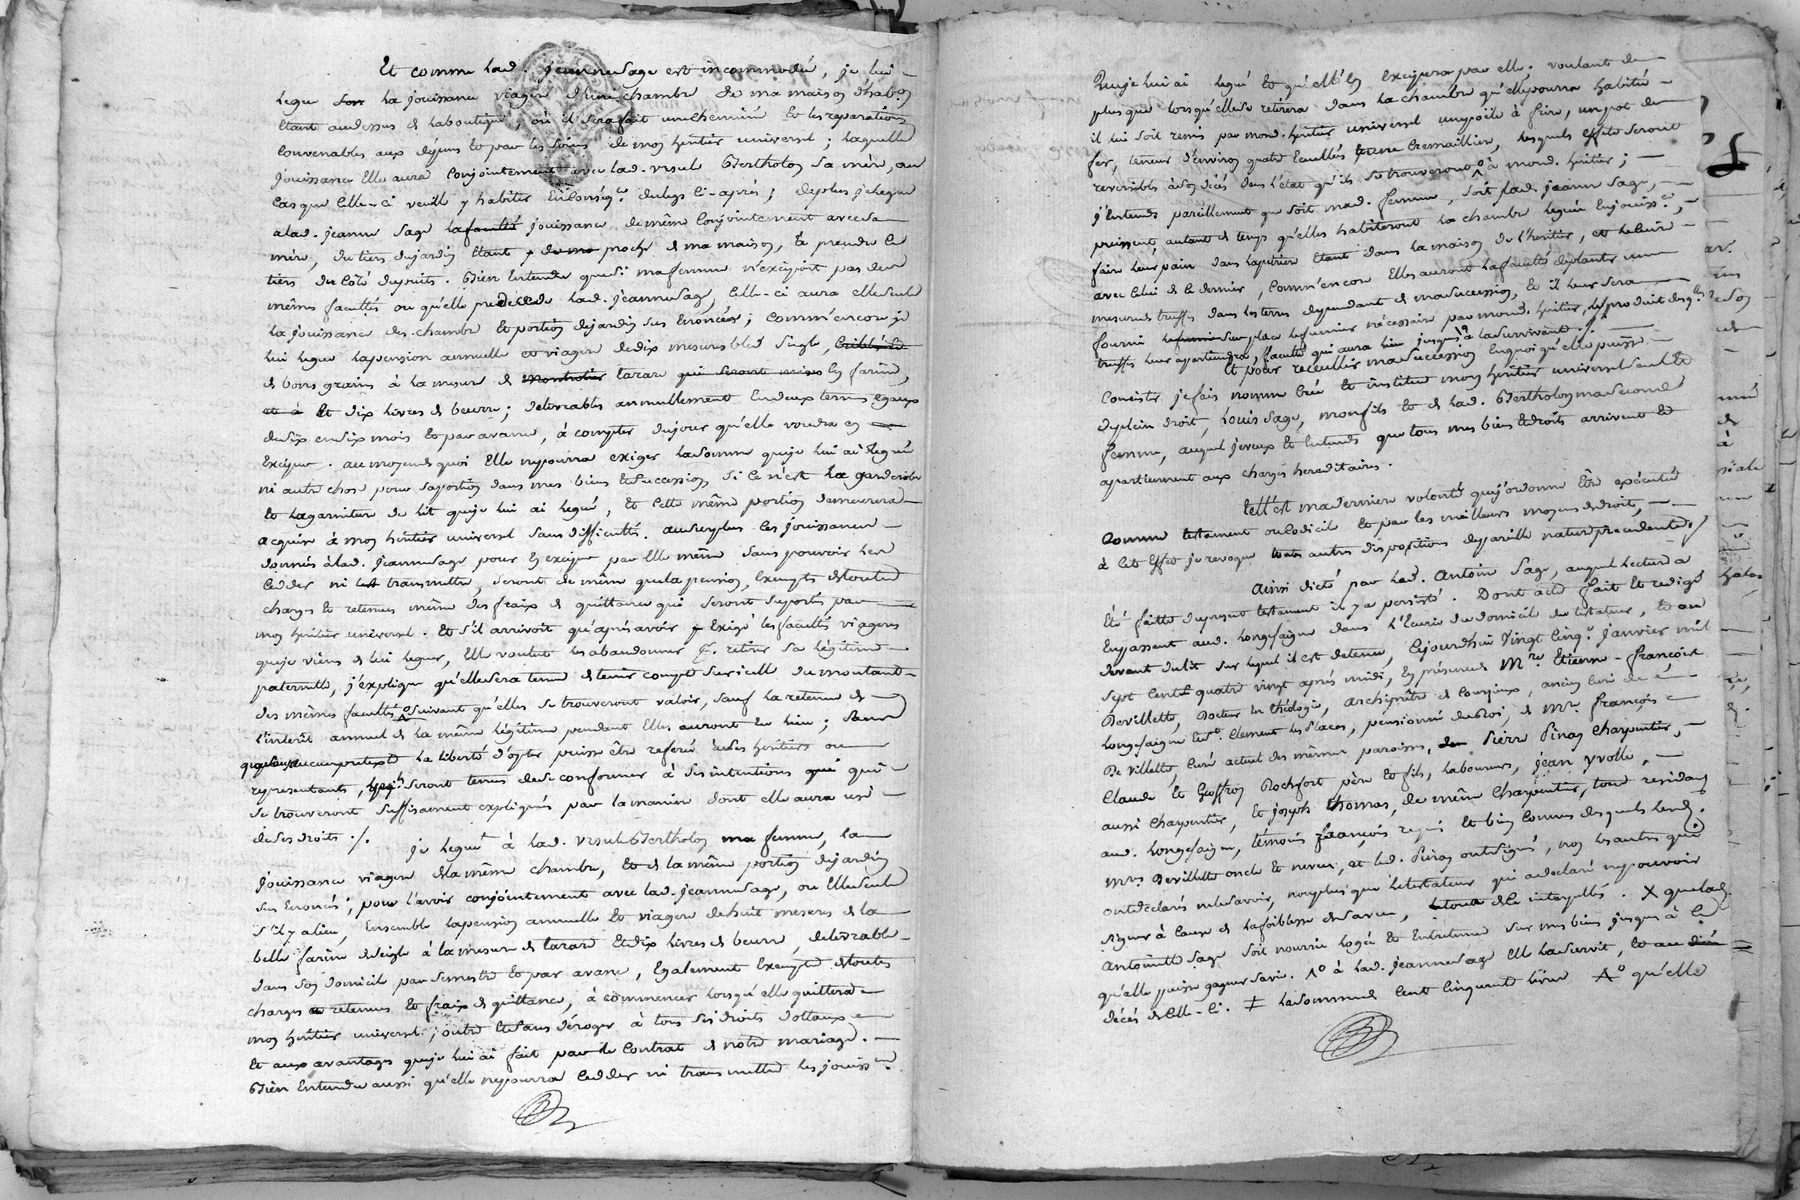 Et comme lad. jeanne Sage est incommodée, je lui
legue la jouissance viagere d'une chambre de ma maison d'habon
étant audessus de la boutique, où il sera fait une cheminée et les reparations
convenables aux depens et par les soins de mon héritier universel; laquelle
jouissance elle aura conjointement avec lad. Ursule Bertholon sa mère, au
cas que celle-ci veuille y habiter du legs ci-après; deplus je legue
a lad. jeanne Sage la faculté jouissance de même conjointement avec sa
mère, du tiers du jardin étant proche de ma maison, à prendre le
tiers du côté du puits. Bien entendu que si ma femme n'exigeoit pas des
mêmes facultés ou qu'elle predecede lad. jeanne Sage, celle-ci aura elle seule
la jouissance des chambre et portion de jardin sus énoncées; comm'encore je
lui legue la pension annuelle et viagere de dix mesures bled seigle,
de bons grains à la mesure de Tarare en farine,
et dix livres de beurre; délivrables annuellement en deux termes egaux
de six en six mois et par avance, à compter du jour qu'elle voudra en
exciper. au moyen de quoi elle ne pourra exiger la somme que je lui ai legué
ni autre chose pour sa portion dans mes biens et succession si ce n'est la garderobe
et la garniture de lit que je lui ai legué, et cette même portion demeurera
acquise à mon héritier universel sans difficulté. au surplus les jouissances
données à lad. jeanne Sage pour en exciper par elle même sans pouvoir les
ceder ni transmettre, seront de même que la pension, exempts de toutes
charges et retenues même des fraix de quittance qui seront suportés par
mon héritier universel. Et s'il arrivoit qu'après avoir exigé les facultés viageres
que je viens de lui leguer, elle voulut les abandonner retirer sa légitime
paternelle, j'explique qu'elle sera tenue de tenir compte sur icelle du montant
des mêmes facultés suivant qu'elles se trouveront valoir, sauf la retenue de
l'interêt annuel de la même légitime pendant elles auront eu lieu; sans
que sous aucun pretexte la liberté d'opter puisse être referée à ses héritiers ou
representants, seront tenus de se conformer à ses intentions qui
se trouveront suffisament expliquées par la maniere dont elle aura usé
de ses droits ./.
Je legue à lad. Ursule Bertholon ma femme, la
jouissance viagere de la même chambre, et de la même portion de jardin
sus énoncés; pour l'avoir conjointement avec lad. jeanne Sage, ou elle seule
s'il y a lieu, ensemble la pension annuelle et viagere de huit mesures de la
belle farine de seigle à la mesure de Tarare et dix livres de beurre, délivrable
dans son domicile par semestre et par avance, également exempte de toutes
charges retenues et fraix de quittance, à commencer lorsqu'elle quittera
mon héritier universel; outre et sans déroger à tous ses droits dottaux
et aux avantages que je lui ai fait par le contrat de notre mariage.
Bien entendu aussi qu'elle ne pourra ceder ni transmettre les jouissces
Que je lui ai legué et qu'elle en excipera par elle. voulant de
plus que lorsqu'elle se retirera dans la chambre qu'elle pourra habiter
il lui soit remis par mond. héritier universel une poële à frire, un pot de
fer, teneur d'environ quatre écuelles et une cremaillier, lesquels effets seront
reversibles à son décès dans l'état qu'ils se trouveront à mond. héritier;
j'entends pareillement que soit mad. femme, soit lad. jeanne Sage,
puissent, autant de temps qu'elles habiteront la chambre leguée
faire leur pain dans la petriere étant dans la maison de l'héritier,
avec celui de ce dernier, comm'encore elles auront la faculté de planter une
mesure de truffes dans les terres dépendant de ma succession, et il leur sera
fourni sur place le fumier nécessaire par mond. héritier, le produit desqlles
truffes leur apartiendra, faculté qui aura lieu jusques à la survivante ./.
Et pour recueillir ma succession en quoi qu'elle puisse
consister je fais nomme crée et institue mon héritier universel seul et
de plein droit, Louis Sage, mon fils et de lad. Bertholon ma seconde
femme, auquel je veux et entends que tous mes biens et droits arrivent et
apartiennent aux charges hereditaires.
telle est ma derniere volonté que j'ordonne être exécutée
comme testament ou codicile et par les meilleurs moyens de droit,
à cet effet je revoque toutes autres dispositions de pareille nature precedentes ./
Ainsi dicté par led. Antoine Sage, auquel lecture a
été faitte du present testament il y a persisté. Dont acte fait et redigé
en passant aud. Longessaigne dans l'écurie du domicile du testateur, et au
devant du lit sur lequel il est detenu, cejourdhui vingt cinq janvier mil
sept cent quatre vingt après midi, en présence de Mre Etienne-François
Devillette, docteur en théologie, archiprêtre de Courzieux, ancien curé de
Longessaigne et st. Clement les Places, pensionné du Roi, de Mre François
Devillette, curé actuel des mêmes paroisses, Pierre Pinay charpentier,
Claude et Geoffroy Rochfort père et fils, laboureurs, jean yvolle,
aussi charpentier, et joseph thomas, de même charpentier, tous residans
aud. Longessaigne, témoins françois requis et bien connus desquels lesd.
mres Devillette oncle et neveu, et led. Pinay ont signé, non les autres qui
ont déclaré ne le savoir, non plus que le testateur qui a declaré ne pouvoir
signer à cause de la foiblesse de sa vue, de ce interpellés. X que lad.
Antoinette Sage soit nourrie logée et entretenue sur mes biens jusques à ce
qu'elle puisse gagner sa vie. Ao à lad. jeanne Sage elle la survit, et au
décès de celle-ci. ‡ la somme de cent cinquante livres Ao qu'elle